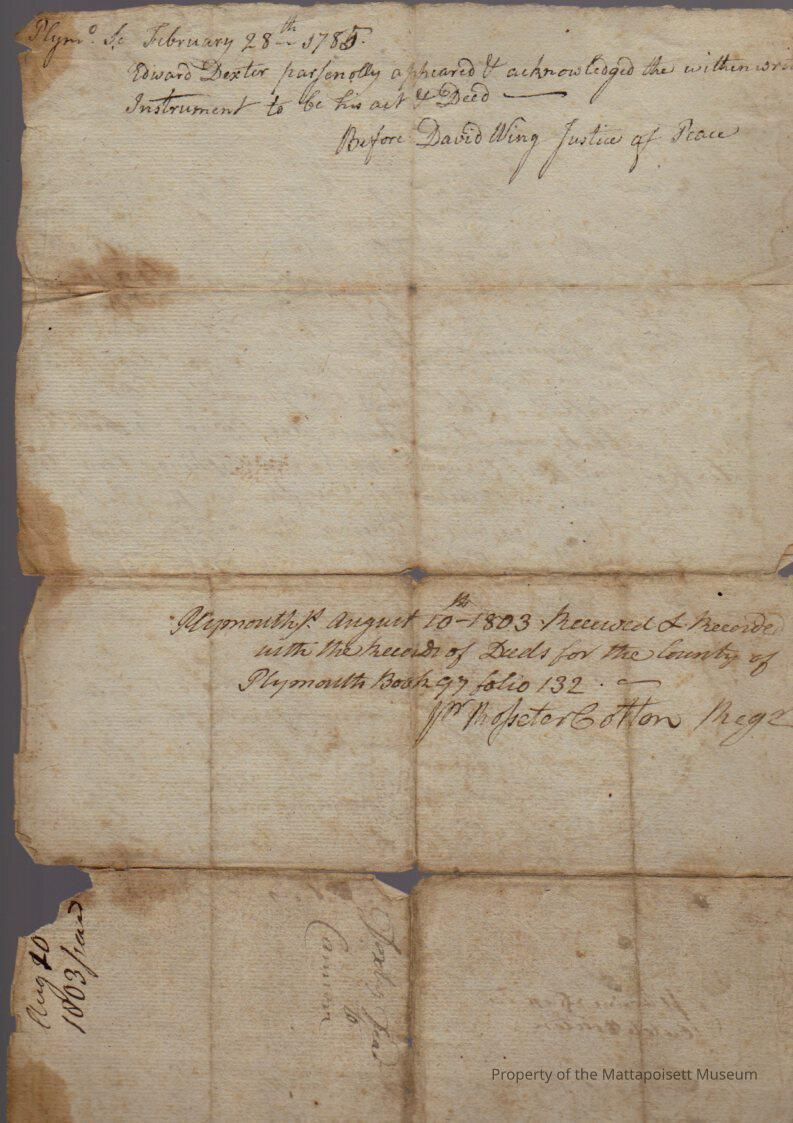 Plymo. Ss February 28th 1785.
Edward Dexter parsenolly appeared & acknowledged the within
Instrument to be his act & Deed
Before David Wing Justice of Peace
Plymouth Ss August 10th 1803. Received & Recorded
with the Records of Deeds for the County of
Plymouth Book 97 folio 132.
pr Rosseter Cotton Regr
Aug 10
1803
to
Cannon
Property of the Mattapoisett Museum